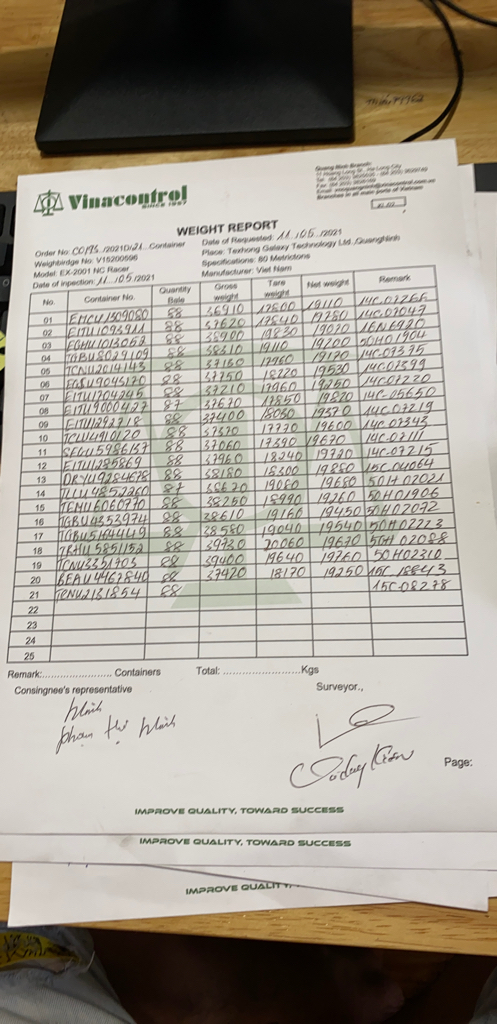 Vinacontrol
SINCE 1957
Quang Ninh Branch:
WEIGHT REPORT
Order No: /2021D/21 Container
Date of Requested: 11/05/2021
Weighbridge No: V15200596
Place: Texhong Galaxy Technology Ltd.,Quangninh
Model: EX-2001 NC Racer
Specifications: 80 Metrictons
Date of inpection: 11/05/2021
Manufacturer: Viet Nam
No. Container No. Quantity Bale Gross weight Tare weight Net weight Remark
01 EMCU1309080 88 36910 17800 19110 14C-07266
02 EITU1093911 88 37620 17840 19780 14C-07047
03 88 38900 19830 19070 16N6920
04 TGBU8029109 88 38310 19110 19200 50H01904
05 TCNU2014143 88 37130 17960 19170 14C-07375
06 EGSU9045170 88 37750 18220 19530 14C01399
07 EITU1704245 87 37210 17960 19250 14C07220
08 EITU9000427 87 37670 17850 19820 14C-05650
09 EITU1292718 88 37400 18030 19370 14C-07219
10 TCLU4910120 88 17770 19600 14C-07343
11 SEGU5986137 88 37060 17390 19670 14C-07111
12 EITU1285869 88 37960 18240 19720 14C-07215
13 DRYU9284678 88 38180 18300 19880 15C-04064
14 TLLU4852260 87 19080 19680 50H02021
15 TEMU6060770 88 38250 18990 19260 50H01906
16 TGBU4353974 88 38610 19160 19450 50H02092
17 TGBU5164449 88 38580 19040 19540 50H02223
18 TRHU5851152 88 39730 20060 19670 50H02088
19 TCNU3351703 88 39400 19640 19760 50H02310
20 BEAU4467840 88 37420 18170 19250 15C-18843
21 TCNU2131854 88 15C-08278
22
23
24
25
Remark:........................ Containers Total: ........................Kgs
Consingnee's representative Surveyor.,
phạm thị
Page:
IMPROVE QUALITY, TOWARD SUCCESS
IMPROVE QUALITY, TOWARD SUCCESS
IMPROVE QUALITY,